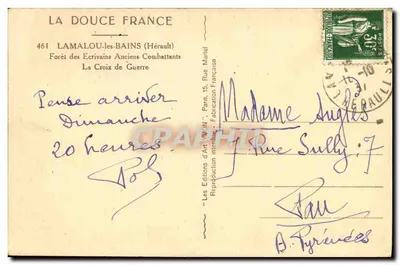 LA DOUCE FRANCE
461 LAMALOU-les-BAINS (Hérault)
Forêt des Ecrivains Anciens Combattants
La Croix de Guerre
Pense arriver
Dimanche
20 heures
Pol
Les Editions d'Art "YVON", Paris, 15, Rue Martel
Reproduction interdite - Fabrication Française
Madame Anglès
7 Rue Sully, 7
Pau
B. Pyrénées
HERAULT